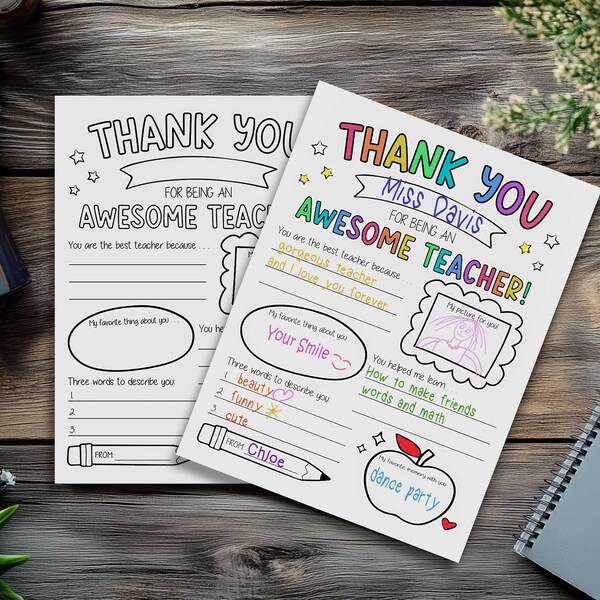 THANK YOU
FOR BEING AN
AWESOME TEAC
You are the best teacher because . . .
My favorite thing about you . . .
You he
Three words to describe you:
1.
2.
3.
FROM:
THANK YOU
Miss Davis
FOR BEING AN
AWESOME TEACHER!
You are the best teacher because . . .
gorgeous teacher
and I love you forever
My picture for you!
My favorite thing about you . . .
Your Smile
You helped me learn . . .
How to make friends
words and math
Three words to describe you:
1. beauty
2. funny
3. cute
FROM: Chloe
My favorite memory with you
dance party